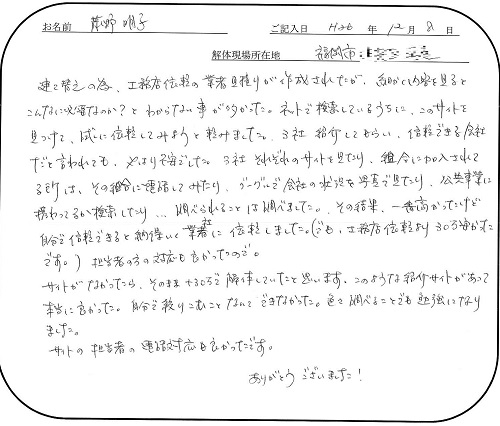 お名前 草野 明子 ご記入日 H26年12月8日
解体現場所在地 福岡市
建て替えの為、工務店依頼の業者見積りが作成されたが、細かく内容を見ると
こんなに必要なのか？とわからない事が多かった。ネットで検索しているうちに、このサイトを
見つけて、試しに依頼してみようと頼みました。3社紹介してもらい、信頼できる会社
だと言われても、やはり不安でした。3社それぞれのサイトを見たり、組合に加入されて
る所は、その組合に連絡してみたり、グーグルで会社の状況を写真で見たり、公共事業に
携わってるか検索したり…調べられることは調べました。その結果、一番高かったけど
自分で信頼できると納得いく業者に依頼しました。(でも、工務店依頼より30万安かった
です。) 担当者の方の対応も良かったので。
サイトがなかったら、そのまま+30万で解体していたと思います。このような紹介サイトがあって
本当に良かった。自分で絞りこむことなんてできなかった。色々調べることでも勉強になり
ました。
サイトの担当者の連絡対応も良かったです。
ありがとうございました！